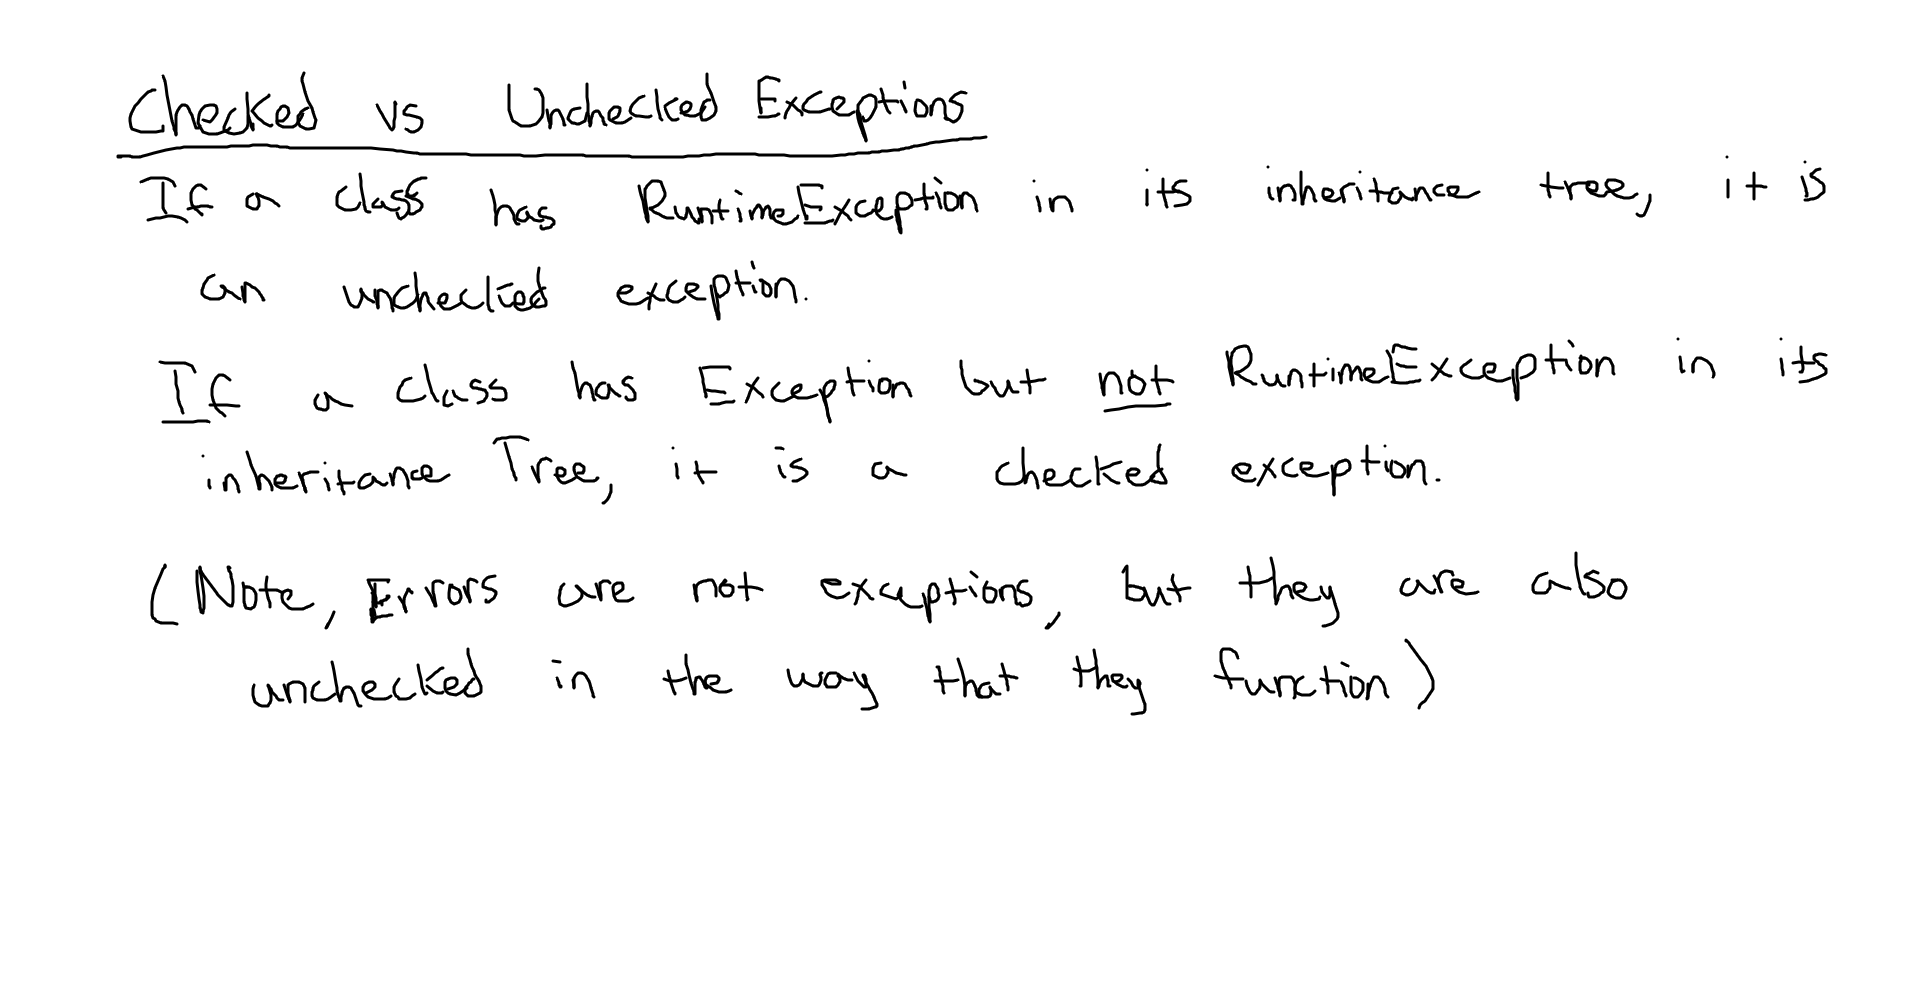 Checked vs Unchecked Exceptions
If a class has RuntimeException in its inheritance tree, it is
an unchecked exception.
If a class has Exception but not RuntimeException in its
inheritance Tree, it is a checked exception.
(Note, Errors are not exceptions, but they are also
unchecked in the way that they function)